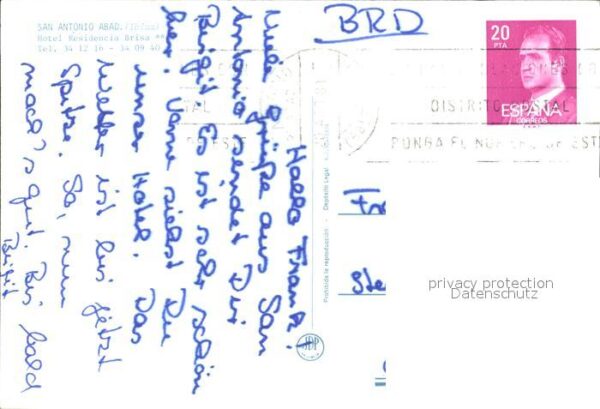 SAN ANTONIO ABAD. (Ibiza)
Hotel Residencia Brisa
Tel. 34 12 16 - 34 09 40
BRD
20
PTA
ESPAÑA
CORREOS
DISTRITO POSTAL
PONGA EL NUMERO DE ESTE
Hallo Frank!
Viele Grüße aus San
Antonio sendet Dir
Birgit. Es ist sehr schön
hier. Vorne siehst Du
unser Hotel. Das
Wetter ist bis jetzt
Spitze. So, nun
mach's gut. Bis bald
Birgit
Prohibida la reproducción - Depósito Legal
JDP
Fr
Ste
privacy protection
Datenschutz